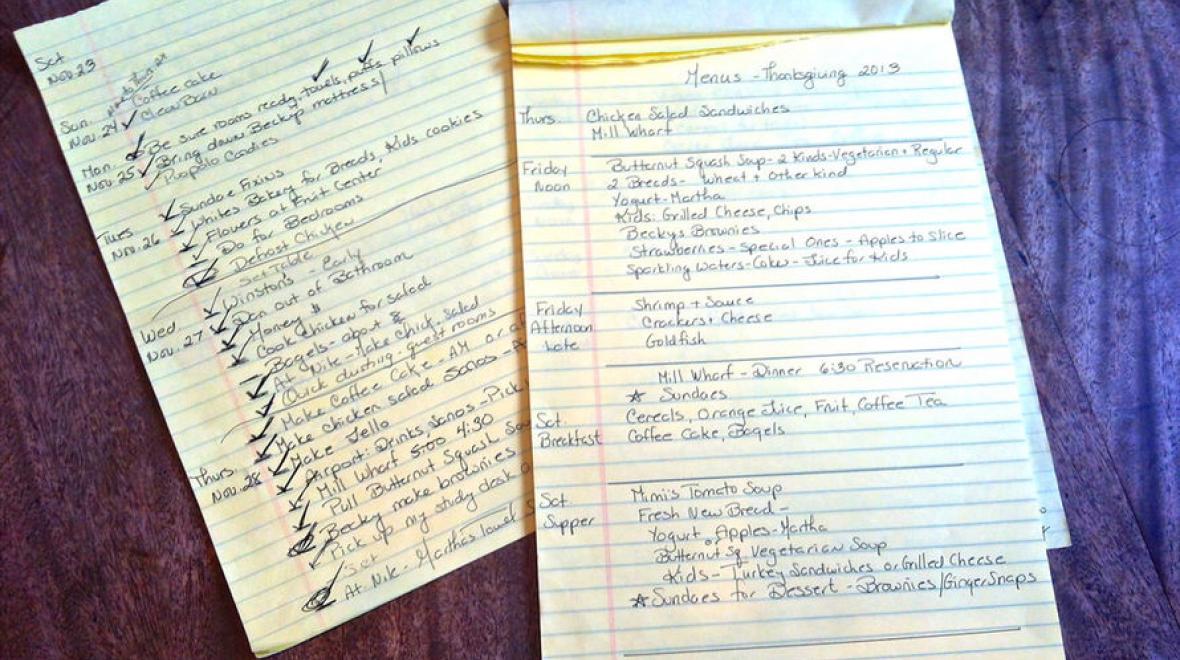 Sat
Nov. 23
Coffee cake
Sun.
Nov. 24 Clean Barn
Be sure rooms ready, towels, puffs, pillows
Mon. Bring down Beckys mattress
Nov. 25 Candies
Sundae Fixins
Whites Bakery for Breads, Kids cookies
Tues Flowers at Fruit Center
Nov. 26 Do for Bedrooms
Defrost Chicken
Set Table
Winstons - Early
Den out of Bathroom
Wed Money $
Nov. 27 Cook Chicken for salad
Bagels - about 8
At Nite - Make chick. salad
Quick dusting - guest rooms
Make Coffee Cake - AM or
Make chicken salad sands -
Make Jello
Thurs Airport: Drinks, Sands - Pick
Nov. 28 Mill Wharf 5:00 4:30
Pull Butternut Squash
Becky make brownies
Pick up my study desk
is set
At Nite - Martha's
Menus - Thanksgiving 2013
Thurs. Chicken Salad Sandwiches
Mill Wharf
Friday Butternut Squash Soup - 2 Kinds - Vegetarian + Regular
Noon 2 Breads - Wheat + other kind
Yogurt - Martha
Kids: Grilled Cheese, Chips
Beckys Brownies
Strawberries - Special Ones - Apples to Slice
Sparkling Waters - Coke - Juice for Kids
Friday Shrimp + Sauce
Afternoon Crackers + Cheese
Late Goldfish
Mill Wharf - Dinner 6:30 Reservation
☆ Sundaes
Sat. Cereals, Orange Juice, Fruit, Coffee Tea
Breakfast Coffee Cake, Bagels
Sat Mimi's Tomato Soup
Supper Fresh New Bread -
Yogurt, Apples - Martha
Butternut Sq. Vegetarian Soup
Kids - Turkey Sandwiches or Grilled Cheese
☆ Sundaes for Dessert - Brownies/GingerSnaps